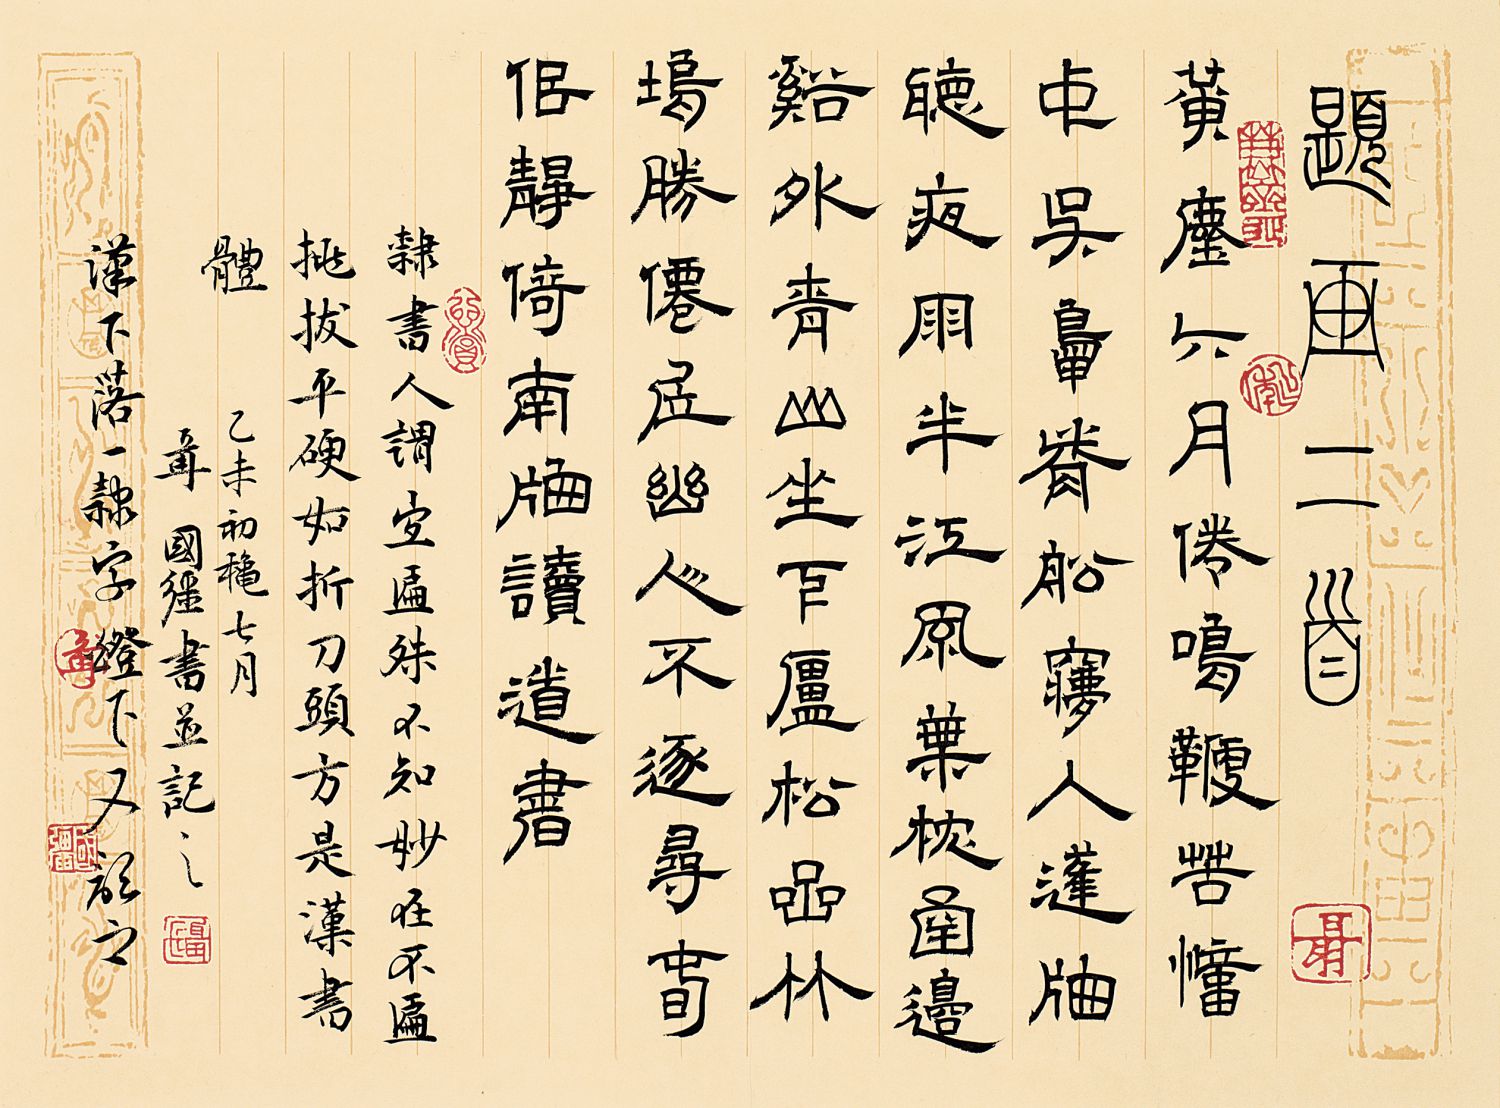 題画二首
黃塵六月倦鳴鞭苦憶
中吳黽脊船㝱入蓬牎
聽夜雨半江風葉枕函邊
谿外青山坐下廬松嵒林
塢勝僊居幽人不逐尋
侶靜倚南牎讀道書
隸書人謂宜匾殊不知妙在不匾
挑拔平硬如折刀頭方是漢書
體 乙未初穐七月
聶國彊書並記之
漢下落一隸字鐙下又記之
聶